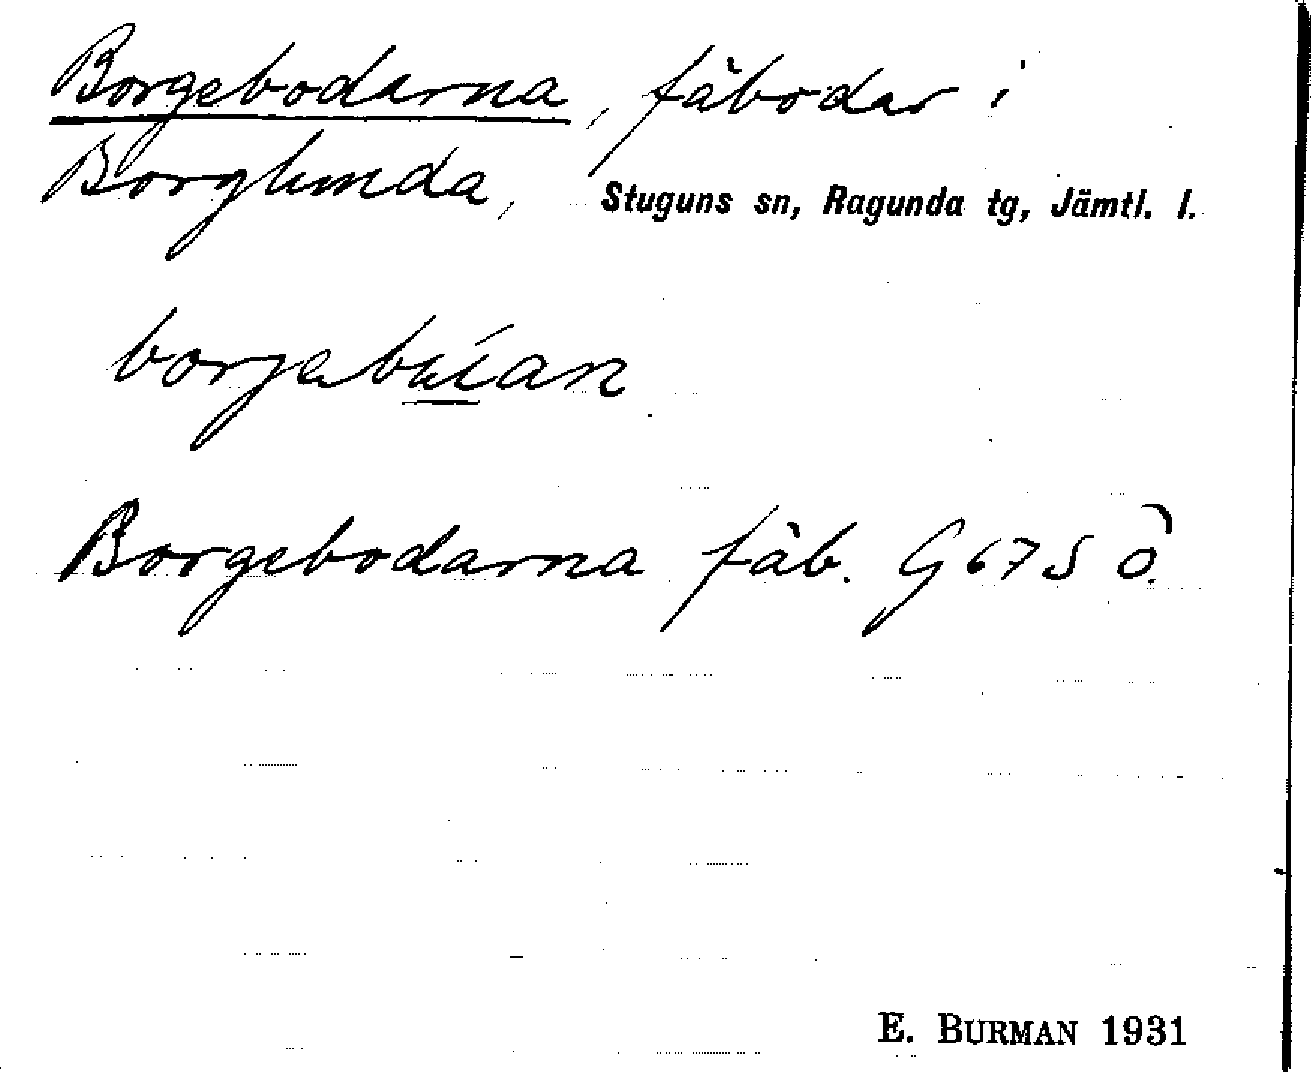 Borgebodarna, fäbodar i
Borglunda, Stuguns sn, Ragunda tg, Jämtl. l.
Borgebodarna fäb. G 67 S Ö.
E. BURMAN 1931